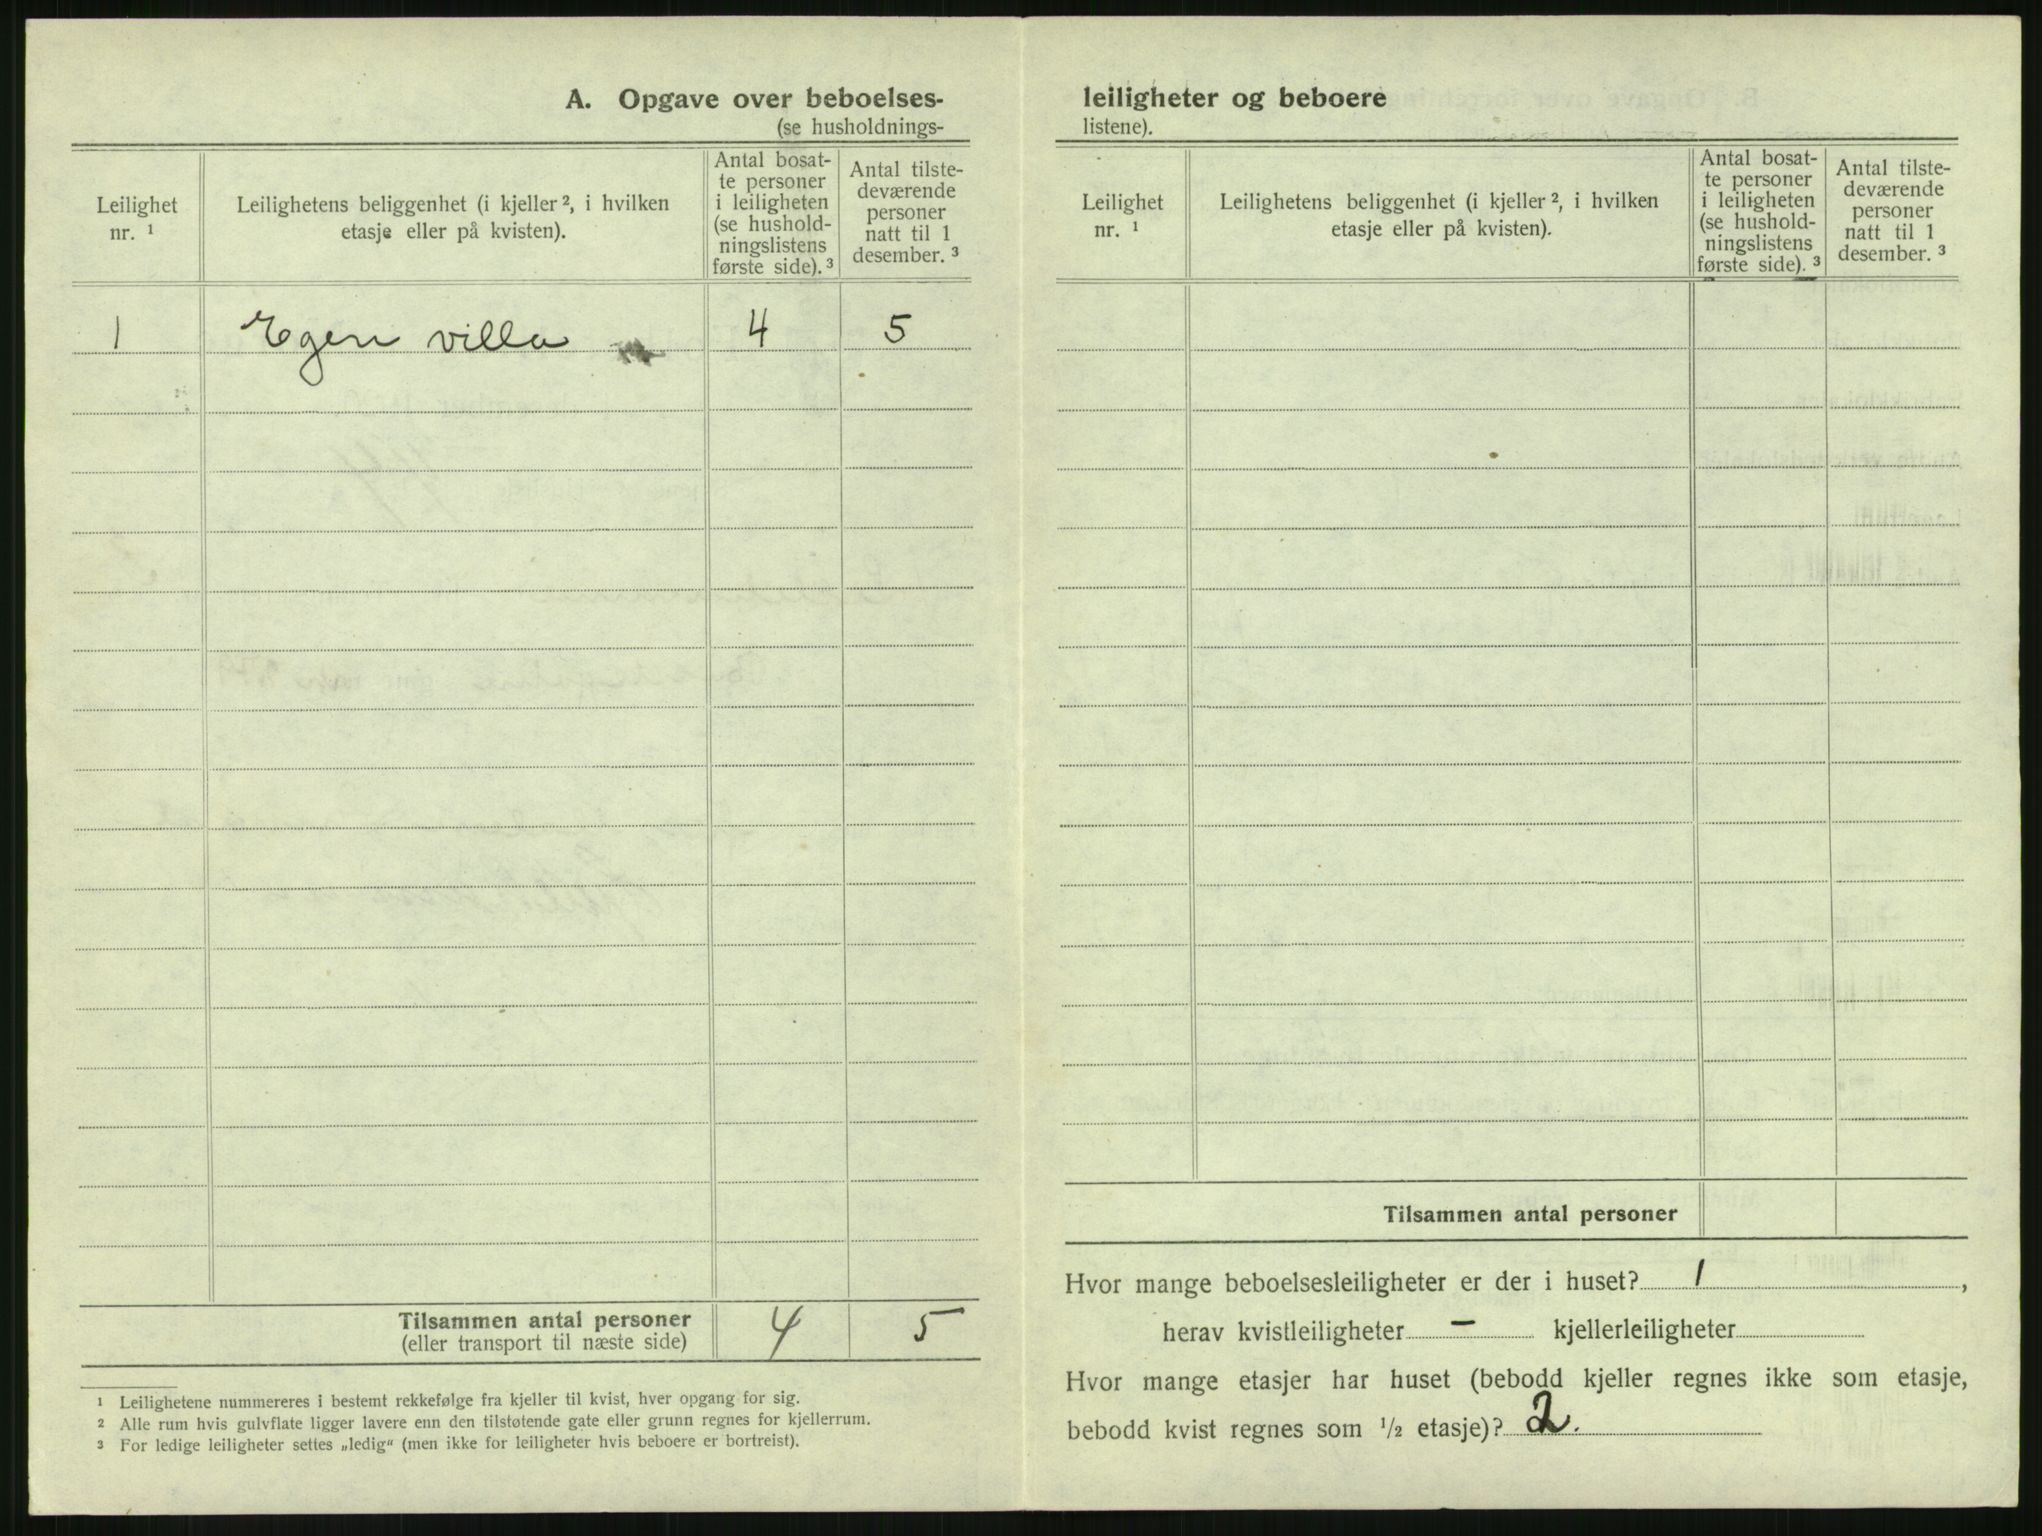 A. Opgave over beboelses-
(se husholdnings-
Leilighet
nr. ¹
Leilighetens beliggenhet (i kjeller ², i hvilken
etasje eller på kvisten).
Antal bosat-
te personer
i leiligheten
(se hushold-
ningslistens
første side). ³
Antal tilste-
deværende
personer
natt til 1
desember. ³
1 Egen villa 4 5
Tilsammen antal personer 4 5
(eller transport til næste side)
¹ Leilighetene nummereres i bestemt rekkefølge fra kjeller til kvist, hver opgang for sig.
² Alle rum hvis gulvflate ligger lavere enn den tilstøtende gate eller grunn regnes for kjellerrum.
³ For ledige leiligheter settes „ledig“ (men ikke for leiligheter hvis beboere er bortreist).
leiligheter og beboere
listene).
Leilighet
nr. ¹
Leilighetens beliggenhet (i kjeller ², i hvilken
etasje eller på kvisten).
Antal bosat-
te personer
i leiligheten
(se hushold-
ningslistens
første side). ³
Antal tilste-
deværende
personer
natt til 1
desember. ³
Tilsammen antal personer
Hvor mange beboelsesleiligheter er der i huset? 1,
herav kvistleiligheter - kjellerleiligheter
Hvor mange etasjer har huset (bebodd kjeller regnes ikke som etasje,
bebodd kvist regnes som ½ etasje)? 2.